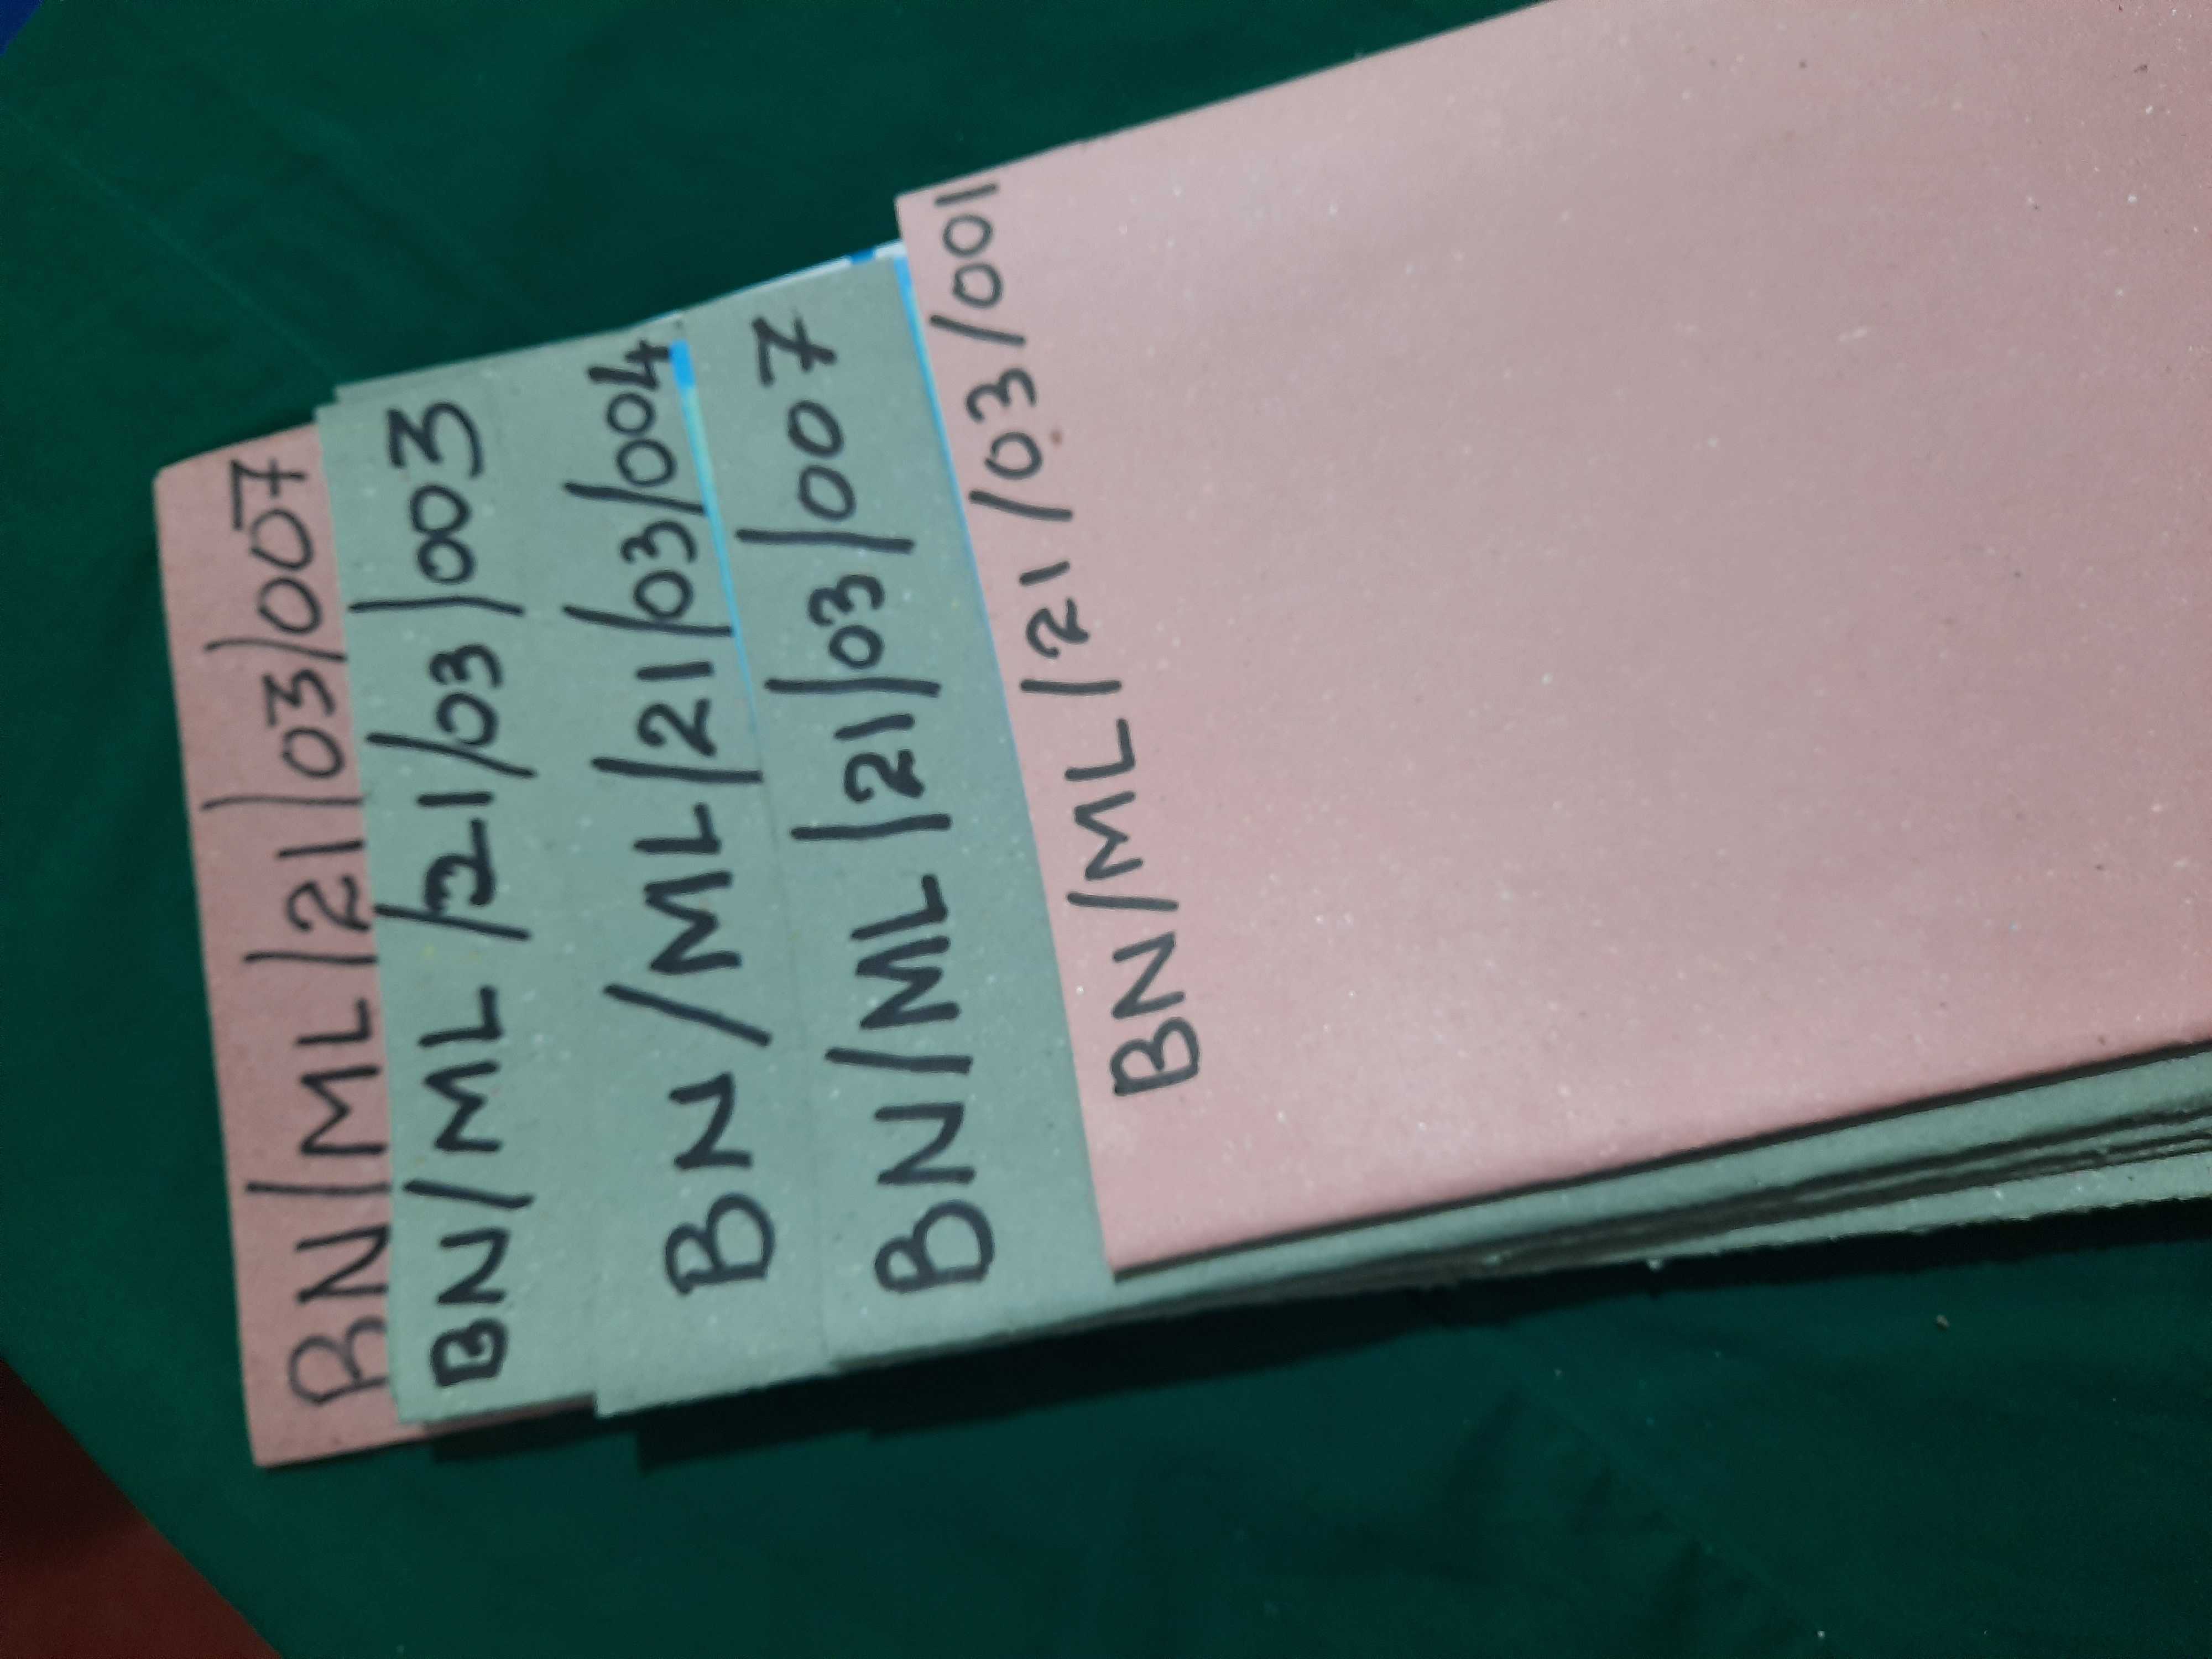 BN/ML/21/03/007
BN/ML/21/03/003
BN/ML/21/03/004
BN/ML/21/03/007
BN/ML/21/03/001